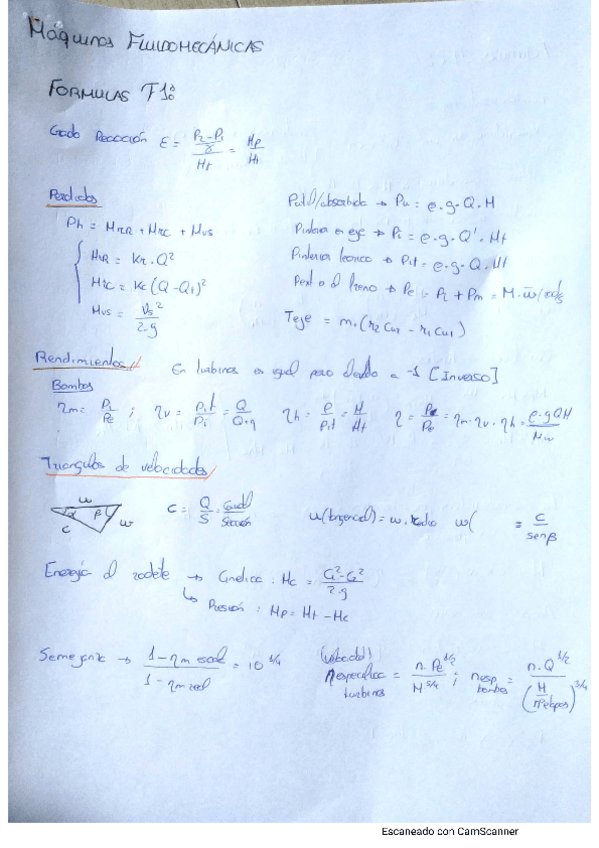 Máquinas FLUIDOMECÁNICAS
FORMULAS T1º
Grado Reacción ε = (P2-P1/γ)/Ht = Hp/Ht
Perdidas
Ph = HrR + HrC + Hus
HrR = Kr·Q²
HrC = Kc(Q-Q1)²
Hus = Vs²/2·g
Putil/absorbida → Pu = e·g·Q·H
Pinterior en eje → Pi = e·g·Q'·Ht
Pinterior teorico → Pit = e·g·Q·Ht
Pext o al freno → Pe = Pi + Pm = M·w
Teje = m·(r2 Cu2 - r1 Cu1)
Rendimientos
En turbinas es igual pero elevado a -1 [Inverso]
Bombas
ηm = Pi/Pe ; ηv = Pit/Pi = Q/Q+q ηh = P/Pit = H/Ht η = Pu/Pe = ηm·ηv·ηh = e·gQH/Mw
Triangulos de velocidades
u
α β
c w
C = Q/S = Caudal/Sección u(tangencial) = w·radio w( = C/senβ
Energía del rodete → Cinetica : Hc = C2²-C1²/2·g
↳ Presión : Hp = Ht - Hc
Semejanza → 1-ηm escal/1-ηm real = 10^1/4
(velocidad)
nespecifica turbinas = n·Pe^1/2/H^5/4 ; nesp bombas = n·Q^1/2/(H/nºetapas)^3/4
Escaneado con CamScanner